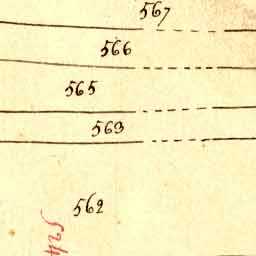 567
566
565
563
562